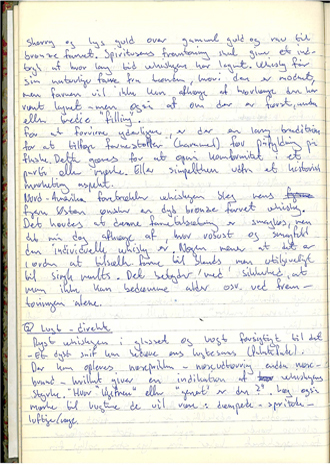 Sherry og lys guld over gammel guld og rav til
bronze farvet. Spirituosens fremtoning skal give et ind-
tryk af hvor lang tid whiskyen har lagret. Whisky får
sin naturlige farve fra tønden, hvori den er modnet,
men farven vil ikke kun afhænge af hvorlænge den har
været lagret - men også af om der er first, anden
eller tredie "filling".
For at forvirre yderligere, er der en lang tradition
for at tilføje farvestoffer (karamel) før påfyldning på
flaske. Dette gøres for at opnå konformitet i et
parti eller mærke. Eller simpelthen udfra et historisk
marketing aspekt.
Nord-Amerika foretrækker whiskyen lys mens
fjern Østen ønsker en dyb bronze farvet whisky.
Det hævdes at denne farvetilsætning er smagløs, men
det må dog afhænge af hvor robust og smagfuld
den individuelle whisky er. Nogen mener at det er
i orden at tilsætte farve til blends men utilgiveligt
til single malts. Det betyder 'med' sikkerhed, at
man ikke kan bedømme alder osv. ved frem-
toningen alene.
② Lugt - direkte
Dyst whiskyen i glasset og lugt forsigtigt til det
- Et dybt snif kan bedøve ens lugtesans
Der kan opleves, næseprikken - næseudtørring endda næse-
brand - hvilket giver en indikation af whiskyens
styrke. "Hvor hjørnen" eller "grønt" er den? Læg også
mærke til lugtene de vil være : dæmpede - spritede -
luftige/